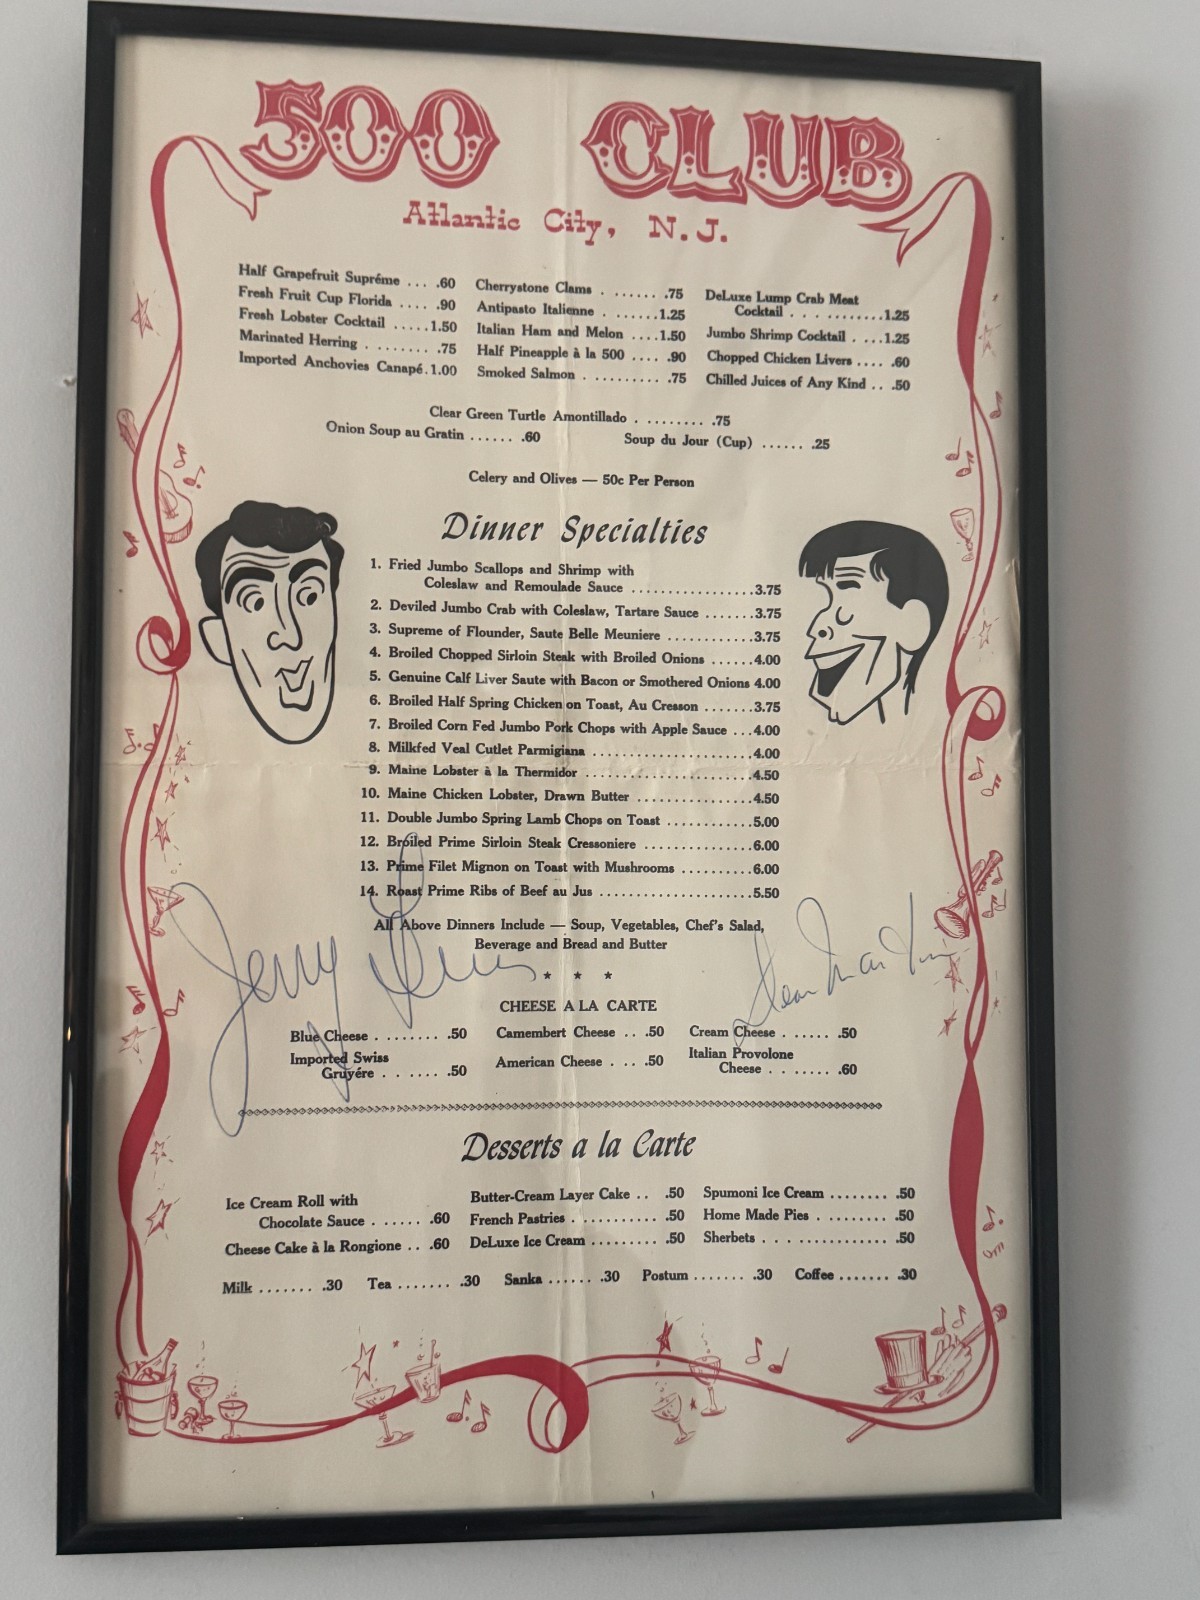 500 CLUB
Atlantic City, N.J.
Half Grapefruit Supréme ... .60
Fresh Fruit Cup Florida .... .90
Fresh Lobster Cocktail .....1.50
Marinated Herring . ........ .75
Imported Anchovies Canapé.1.00
Cherrystone Clams . ...... .75
Antipasto Italienne . .......1.25
Italian Ham and Melon ....1.50
Half Pineapple à la 500 .... .90
Smoked Salmon . ......... .75
DeLuxe Lump Crab Meat
Cocktail . . ..........1.25
Jumbo Shrimp Cocktail . ...1.25
Chopped Chicken Livers .... .60
Chilled Juices of Any Kind .. .50
Clear Green Turtle Amontillado . ........ .75
Onion Soup au Gratin ...... .60
Soup du Jour (Cup) ...... .25
Celery and Olives — 50c Per Person
Dinner Specialties
1. Fried Jumbo Scallops and Shrimp with
Coleslaw and Remoulade Sauce .................3.75
2. Deviled Jumbo Crab with Coleslaw, Tartare Sauce .......3.75
3. Supreme of Flounder, Saute Belle Meuniere ............3.75
4. Broiled Chopped Sirloin Steak with Broiled Onions ......4.00
5. Genuine Calf Liver Saute with Bacon or Smothered Onions 4.00
6. Broiled Half Spring Chicken on Toast, Au Cresson .......3.75
7. Broiled Corn Fed Jumbo Pork Chops with Apple Sauce ...4.00
8. Milkfed Veal Cutlet Parmigiana .......................4.00
9. Maine Lobster à la Thermidor ........................4.50
10. Maine Chicken Lobster, Drawn Butter ................4.50
11. Double Jumbo Spring Lamb Chops on Toast ............5.00
12. Broiled Prime Sirloin Steak Cressoniere ...............6.00
13. Prime Filet Mignon on Toast with Mushrooms ..........6.00
14. Roast Prime Ribs of Beef au Jus ......................5.50
All Above Dinners Include — Soup, Vegetables, Chef's Salad,
Beverage and Bread and Butter
Jerry Lewis
Dean Martin
* * *
CHEESE A LA CARTE
Blue Cheese . ....... .50
Imported Swiss
Gruyére . . ...... .50
Camembert Cheese .. .50
American Cheese . .. .50
Cream Cheese . ..... .50
Italian Provolone
Cheese . . ...... .60
Desserts a la Carte
Ice Cream Roll with
Chocolate Sauce . ...... .60
Cheese Cake à la Rongione .. .60
Butter-Cream Layer Cake .. .50
French Pastries . ......... .50
DeLuxe Ice Cream ......... .50
Spumoni Ice Cream ........ .50
Home Made Pies . ........ .50
Sherbets . . .............. .50
Milk ....... .30 Tea ....... .30 Sanka ...... .30 Postum ....... .30 Coffee ....... .30